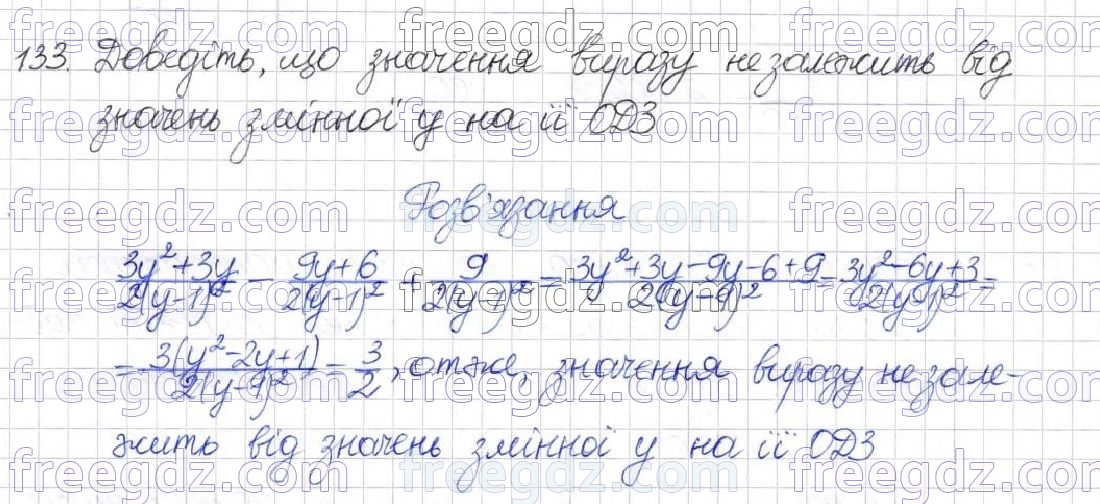 133. Доведіть, що значення виразу не залежить від
значень змінної у на її ОДЗ
Розв'язання
(3y²+3y)/(2(y-1)²) - (9y+6)/(2(y-1)²) + 9/(2(y-1)²) = (3y²+3y-9y-6+9)/(2(y-1)²) = (3y²-6y+3)/(2(y-1)²) =
= (3(y²-2y+1))/(2(y-1)²) = 3/2, отже, значення виразу не зале-
жить від значень змінної у на її ОДЗ
freegdz.com freegdz.com freegdz.com